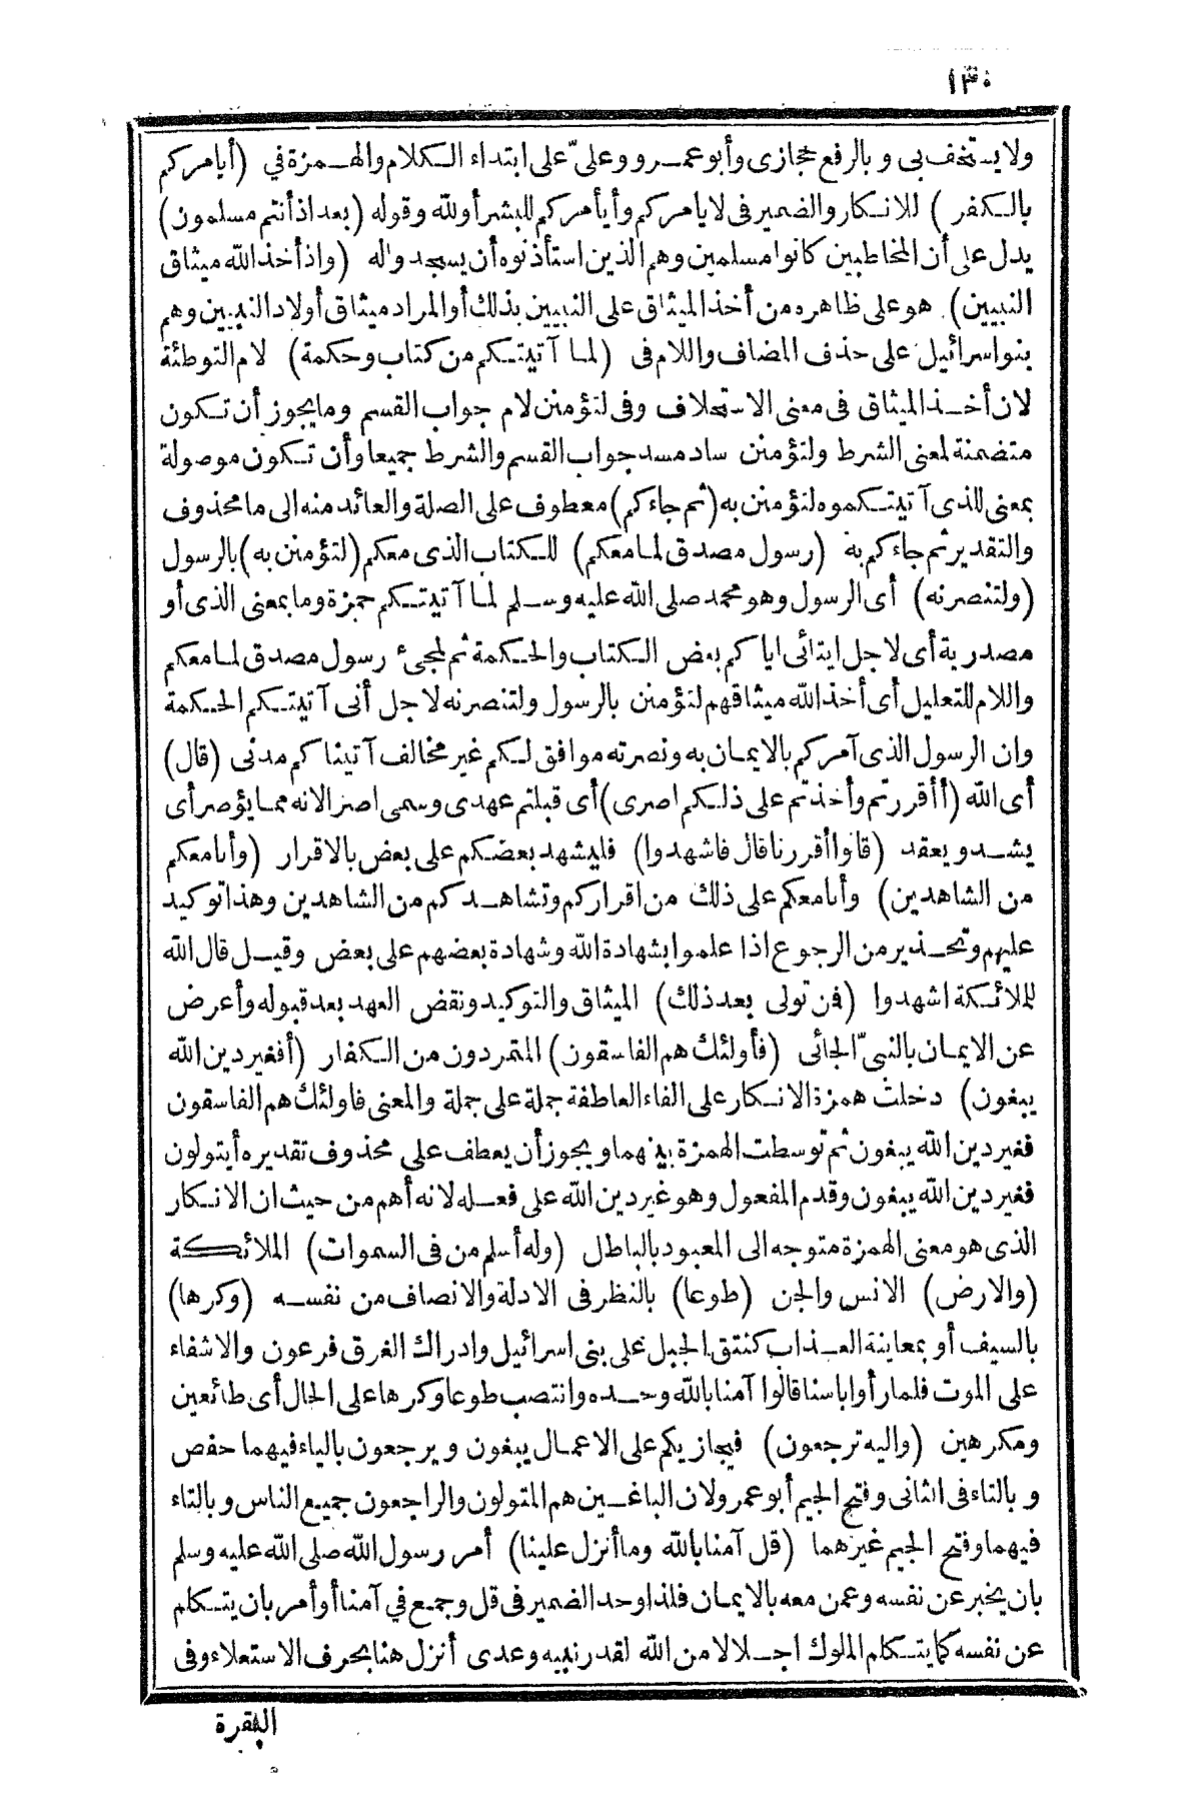 ١٣٠
ولا يستخف بى و بالرفع حجازى وأبو عمرو وعلىّ على ابتداء الكلام والهمزة في (أيامركم
بالكفر) للانكار والضمير فى لا يامركم وأيأمركم للبشر أولله وقوله (بعد اذ أنتم مسلمون)
يدل على أن المخاطبين كانوا مسلمين وهم الذين استأذنوه أن يسجدوا له (واذ أخذ الله ميثاق
النبيين) هو على ظاهره من أخذ الميثاق على النبيين بذلك أو المراد ميثاق أولاد النبيين وهم
بنو اسرائيل على حذف المضاف واللام فى (لما آتيتكم من كتاب وحكمة) لام التوطئة
لان أخذ الميثاق فى معنى الاستحلاف وفى لتؤمنن لام جواب القسم وما يجوز أن تكون
متضمنة لمعنى الشرط ولتؤمنن ساد مسد جواب القسم والشرط جميعا وأن تكون موصولة
بمعنى للذى آتيتكموه لتؤمنن به (ثم جاءكم) معطوف على الصلة والعائد منه الى ما محذوف
والتقدير ثم جاءكم به (رسول مصدق لما معكم) للكتاب الذى معكم (لتؤمنن به) بالرسول
(ولتنصرنه) أى الرسول وهو محمد صلى الله عليه وسلم لما آتيتكم حمزة وما بمعنى الذى أو
مصدرية أى لاجل ايتائى اياكم بعض الكتاب والحكمة ثم لمجىء رسول مصدق لما معكم
واللام للتعليل أى أخذ الله ميثاقهم لتؤمنن بالرسول ولتنصرنه لاجل أنى آتيتكم الحكمة
وان الرسول الذى آمركم بالايمان به ونصرته موافق لكم غير مخالف آتيناكم مدنى (قال)
أى الله (أأقررتم وأخذتم على ذلكم اصرى) أى قبلتم عهدى وسمى اصرا لانه مما يؤصر أى
يشد ويعقد (قالوا أقررنا قال فاشهدوا) فليشهد بعضكم على بعض بالاقرار (وأنا معكم
من الشاهدين) وأنا معكم على ذلك من اقراركم وتشاهدكم من الشاهدين وهذا توكيد
عليهم وتحذير من الرجوع اذا علموا بشهادة الله وشهادة بعضهم على بعض وقيل قال الله
للملائكة اشهدوا (فمن تولى بعد ذلك) الميثاق والتوكيد ونقض العهد بعد قبوله وأعرض
عن الايمان بالنبىّ الجائى (فأولئك هم الفاسقون) المتمردون من الكفار (أفغير دين الله
يبغون) دخلت همزة الانكار على الفاء العاطفة جملة على جملة والمعنى فاولئك هم الفاسقون
فغير دين الله يبغون ثم توسطت الهمزة بينهما ويجوز أن يعطف على محذوف تقديره أيتولون
فغير دين الله يبغون وقدم المفعول وهو غير دين الله على فعله لانه أهم من حيث ان الانكار
الذى هو معنى الهمزة متوجه الى المعبود بالباطل (وله أسلم من فى السموات) الملائكة
(والارض) الانس والجن (طوعا) بالنظر فى الادلة والانصاف من نفسه (وكرها)
بالسيف أو بمعاينة العذاب كنتق الجبل على بنى اسرائيل وادراك الغرق فرعون والاشفاء
على الموت فلما رأوا باسنا قالوا آمنا بالله وحده وانتصب طوعا وكرها على الحال أى طائعين
ومكرهين (واليه ترجعون) فيجازيكم على الاعمال يبغون ويرجعون بالياء فيهما حفص
وبالتاء فى الثانى وفتح الجيم أبو عمرو لان الباغين هم المتولون والراجعون جميع الناس وبالتاء
فيهما وفتح الجيم غيرهما (قل آمنا بالله وما أنزل علينا) أمر رسول الله صلى الله عليه وسلم
بان يخبر عن نفسه وعمن معه بالايمان فلذا وحد الضمير فى قل وجمع في آمنا أو أمر بان يتكلم
عن نفسه كما يتكلم الملوك اجلالا من الله لقدر نبيه وعدى أنزل هنا بحرف الاستعلاء وفى
البقرة